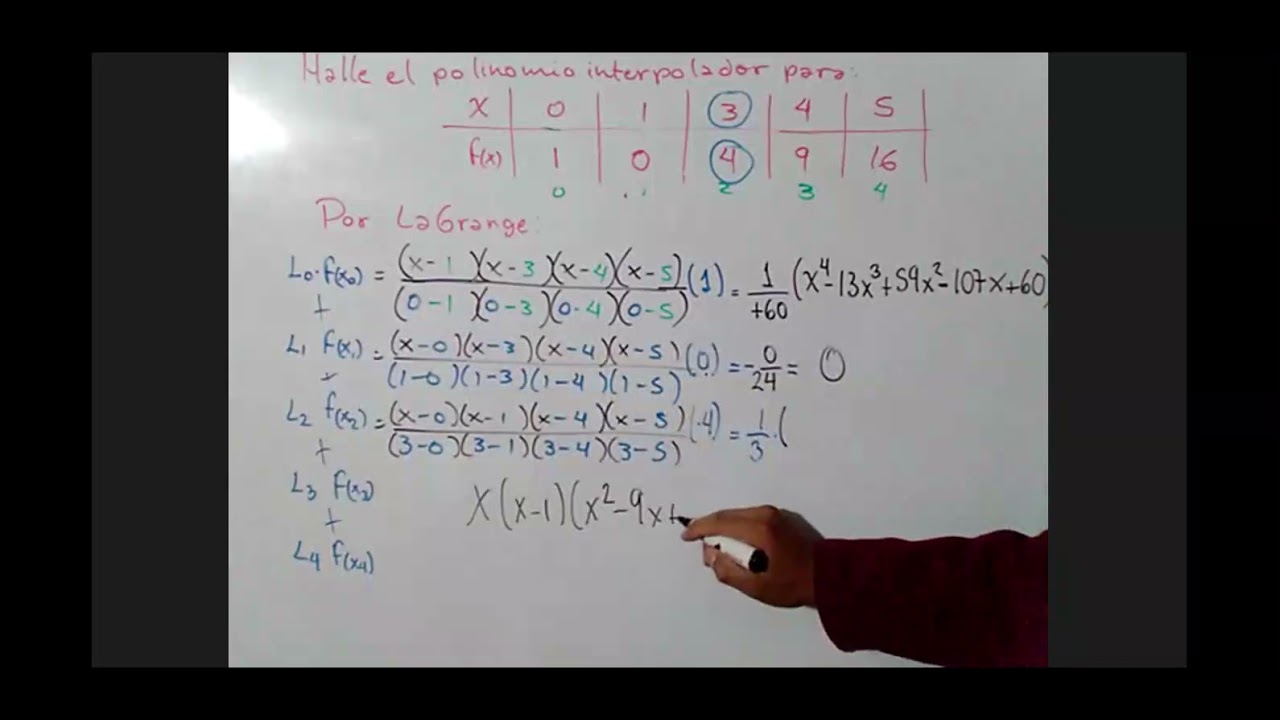 Halle el polinomio interpolador para:
X | 0 | 1 | 3 | 4 | 5 |
f(x) | 1 | 0 | 4 | 9 | 16
0 .. 2 3 4
Por LaGrange:
L₀·f(x₀) = (x-1)(x-3)(x-4)(x-5)/(0-1)(0-3)(0-4)(0-5) (1) = 1/+60 (x⁴-13x³+59x²-107x+60)
+
L₁ f(x₁) = (x-0)(x-3)(x-4)(x-5)/(1-0)(1-3)(1-4)(1-5) (0) = -0/24 = 0
+
L₂ f(x₂) = (x-0)(x-1)(x-4)(x-5)/(3-0)(3-1)(3-4)(3-5) (·4) = 1/3·(
+
L₃ f(x₃) X(x-1)(x²-9x+
+
L₄ f(x₄)